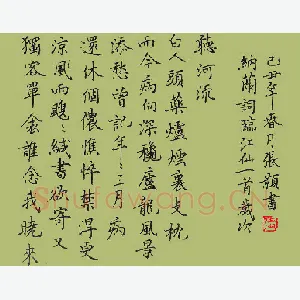 獨客單衾誰念我曉來
涼風雨颼〻緘書欲寄又
還休個儂憔悴禁得更
添愁曾記年〻三月病
而今病向深穐盧龍風景
白人頭藥爐煙裏支枕
聽河流
納蘭詞臨江仙一首歲次
己丑年春月張顥書
Shufawang.CN